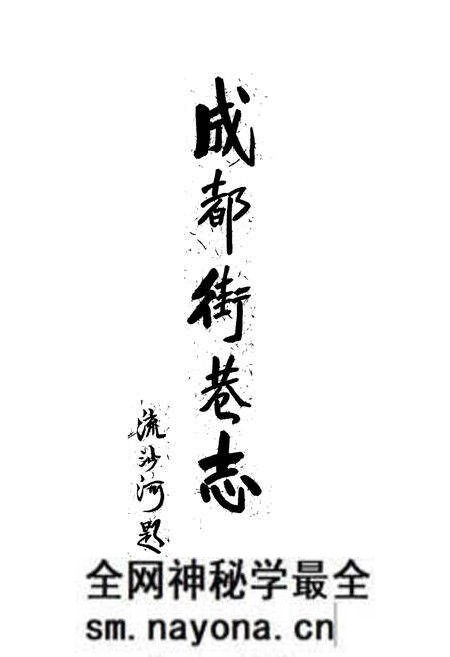 成都街巷志
流沙河题
全网神秘学最全
sm.nayona.cn